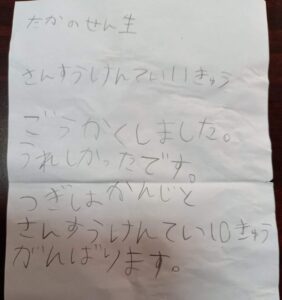 たかのせん生
さんすうけんてい11きゅう
ごうかくしました。
うれしかったです。
つぎはかんじと
さんすうけんてい10きゅう
がんばります。